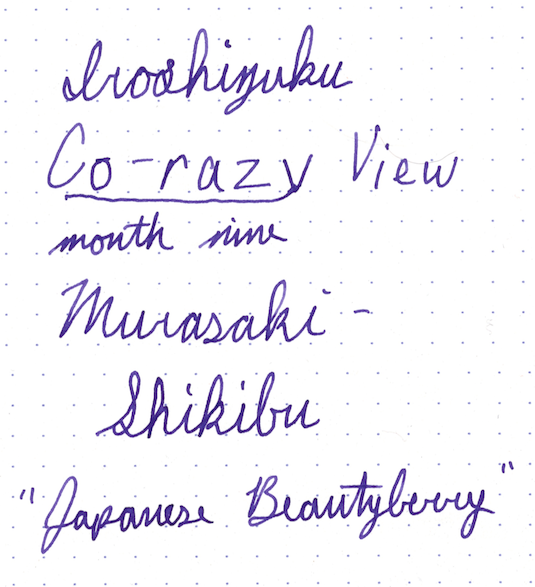 Iroshizuku
Co-razy View
month nine
Murasaki-
Shikibu
"Japanese Beautyberry"